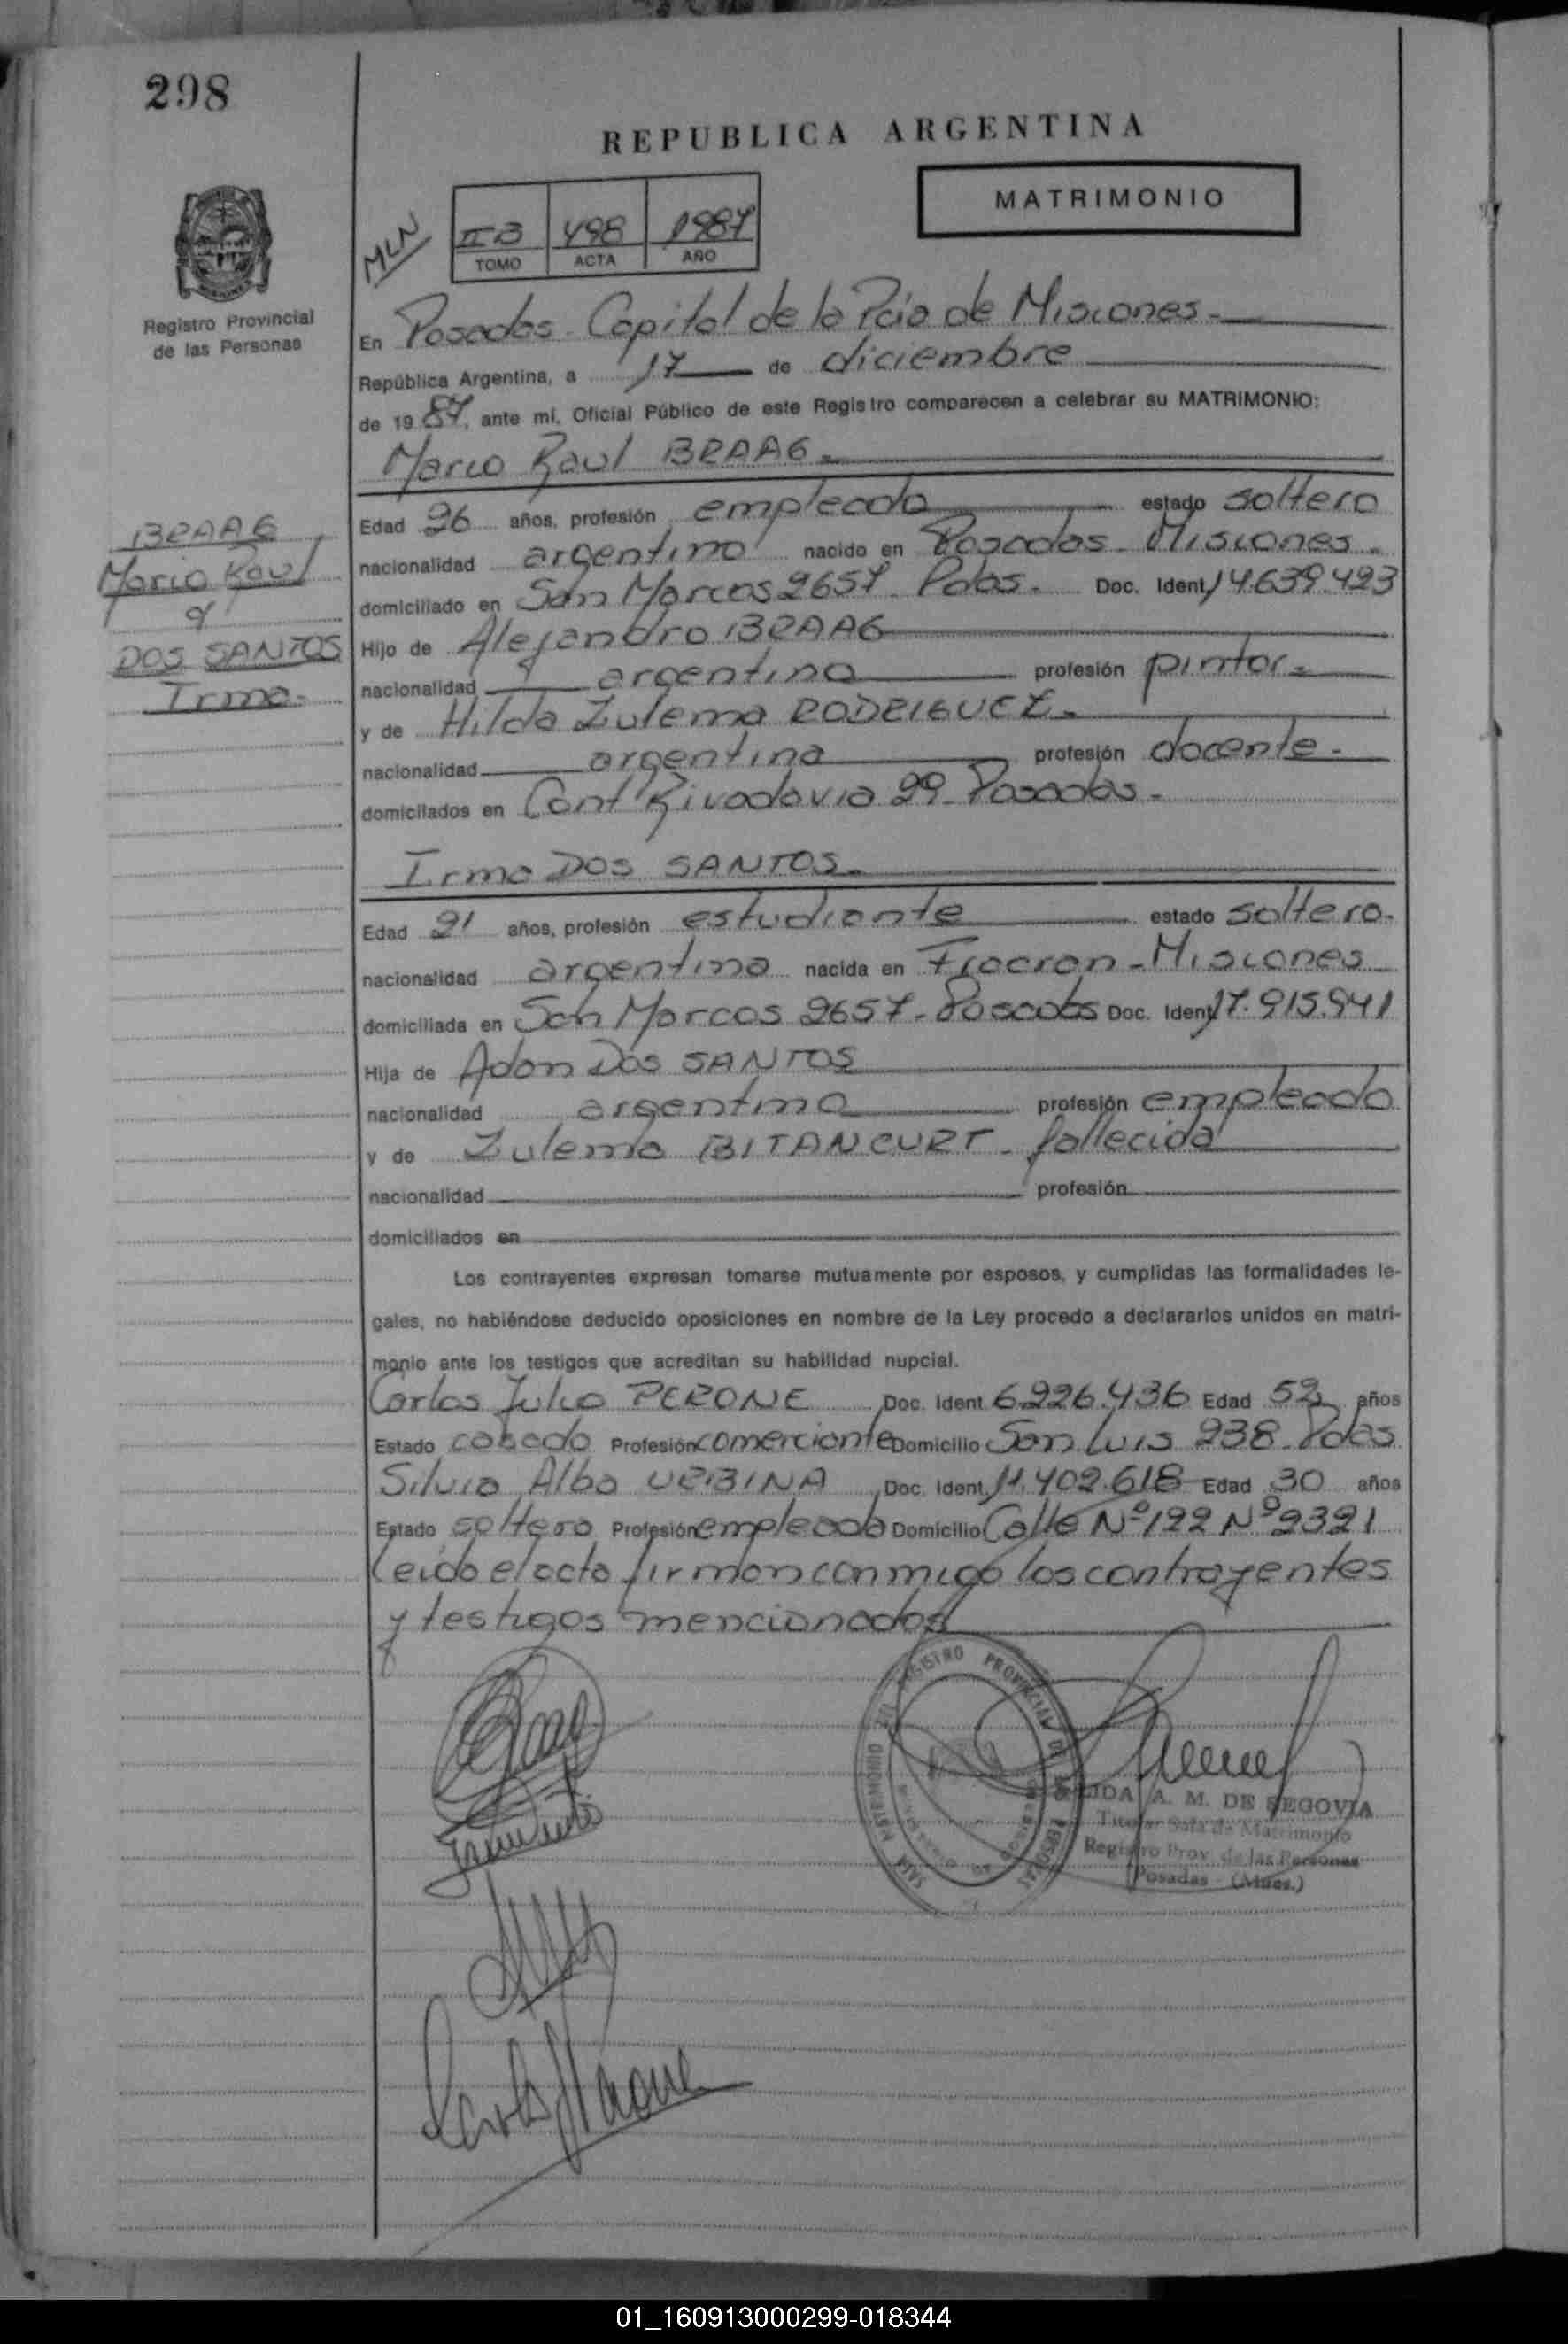 298
REPUBLICA ARGENTINA
MATRIMONIO
MLN
II B 498 1987
TOMO ACTA AÑO
Registro Provincial
de las Personas
En Posadas - Capital de la Pcia de Misiones.-
República Argentina, a 17 de diciembre
de 19 87, ante mí, Oficial Público de este Registro comparecen a celebrar su MATRIMONIO:
Mario Raul BRAAG.-
BRAAG
Mario Raul
y
DOS SANTOS
Irma.-
Edad 26 años, profesión empleado estado soltero
nacionalidad argentino nacido en Posadas - Misiones.-
domiciliado en San Marcos 2657 - Pdas.- Doc. Ident. 14.639.423
Hijo de Alejandro BRAAG
nacionalidad argentina profesión pintor.-
y de Hilda Zulema RODRIGUEZ.-
nacionalidad argentina profesión docente.-
domicilados en Cont Rivadavia 29 - Posadas.-
Irma DOS SANTOS.-
Edad 21 años, profesión estudiante estado soltera.-
nacionalidad argentina nacida en Fracran - Misiones
domiciliada en San Marcos 2657 - Posadas Doc. Ident. 17.915.941
Hija de Adan Dos SANTOS
nacionalidad argentina profesión empleado
y de Zulema BITANCURT - fallecida
nacionalidad profesión
domiciliados en
Los contrayentes expresan tomarse mutuamente por esposos, y cumplidas las formalidades le-
gales, no habiéndose deducido oposiciones en nombre de la Ley procedo a declararlos unidos en matri-
monio ante los testigos que acreditan su habilidad nupcial.
Carlos Julio PERONE Doc. Ident. 6.226.436 Edad 52 años
Estado casado Profesión comerciante Domicilio San Luis 238 - Pdas
Silvia Alba URBINA Doc. Ident. 11.402.618 Edad 30 años
Estado soltera Profesión empleada Domicilio Calle Nº 122 Nº 2321
Leido el acta firman conmigo los contrayentes
y testigos mencionados
REGISTRO PROVINCIAL DE LAS PERSONAS
SALA MATRIMONIO
A. M. DE SEGOVIA
Titular Sala de Matrimonio
Registro Prov. de las Personas
Posadas - (Mnes.)
01_160913000299-018344